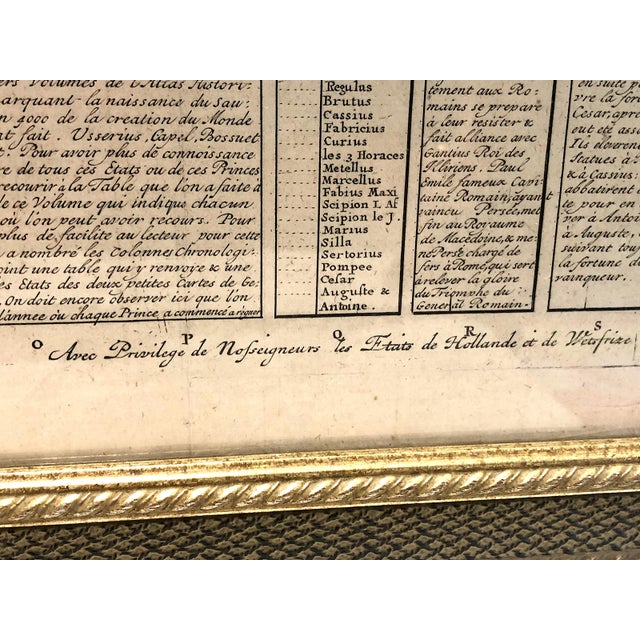 Volumes de l'Atlas Histori-
arquant la naissance du Sau-
4000 de la creation du Monde
fait. Usserius, Capel, Bossuet
Pour avoir plus de connoissance
re de tous ces Etats ou de ces Princes
recourir à la Table que l'on a faite à
de ce Volume qui indique chacun
où l'on peut avoir recours. Pour
plus de facilite au lecteur pour cette
a nombré les Colonnes Chronologi
oint une table qui y renvoye & une
es Etats des deux petites Cartes de Ge-
On doit encore observer ici que l'on
l'année ou chaque Prince a commencé a régner
Regulus
Brutus
Cassius
Fabricius
Curius
les 3 Horaces
Metellus
Marcellus
Fabius Maxi
Scipion L Af
Scipion le J.
Marius
Silla
Sertorius
Pompee
Cesar
Auguste &
Antoine.
tement aux Ro-
mains se prepare
à leur resister &
fait alliance avec
Gantius Roi des
Iliriens. Paul
Emile fameux Capi-
taine Romain, ayant
vaincu Persée, met
fin au Royaume
de Macedoine, & me-
ne Persé chargé de
fers à Rome, qui sert
à relever la gloire
du Triomphe du
General Romain.
en suite p
vre la fort
Cesar, apre
eut été ass
Ils devren
Statues à
& à Cassius:
abbatirent
te pour en
ver à Anto
à Auguste, C
suivant tou
la fortune d
vainqueur.
O P O R S
Avec Privilege de Nosseigneurs les Etats de Hollande et de Wetsfrize